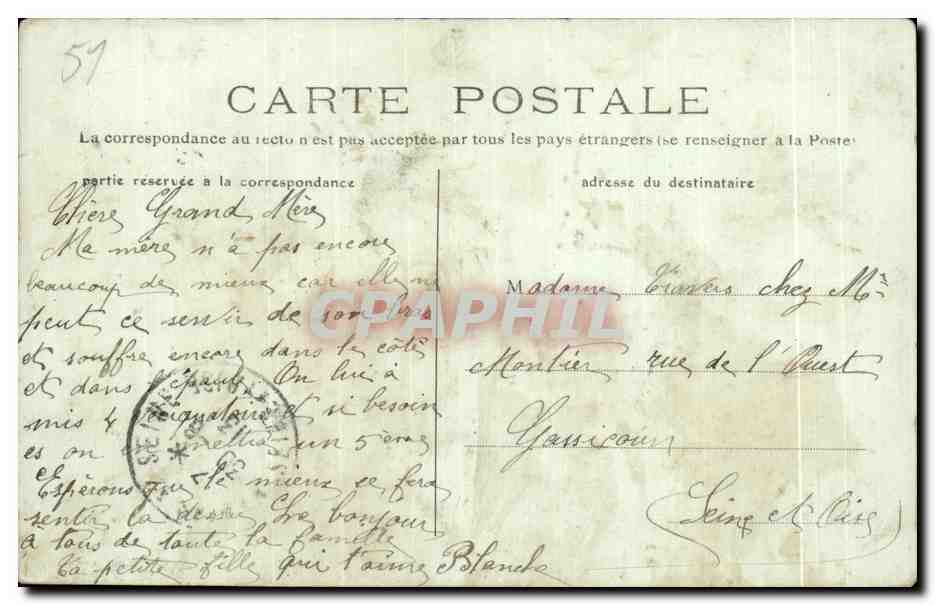 51
CARTE POSTALE
La correspondance au recto n'est pas acceptée par tous les pays étrangers (se renseigner à la Poste)
partie réservée a la correspondance
adresse du destinataire
Chère Grand Mère
Ma mère n'a pas encore
beaucoup de mieux car elle ne
peut ce servir de son bras
et souffre encore dans le côté
et dans l'épaule On lui à
mis 4 et si besoin
es on mettra un 5ème
Espérons que le mieux ce fera
sentir la bonjour
a tous de toute la famille
Ta petite fille qui t'aime Blanche
Madame chez Mr
Montier rue de l'Ouest
Gassicourt
Seine et Oise
CPAPHIL